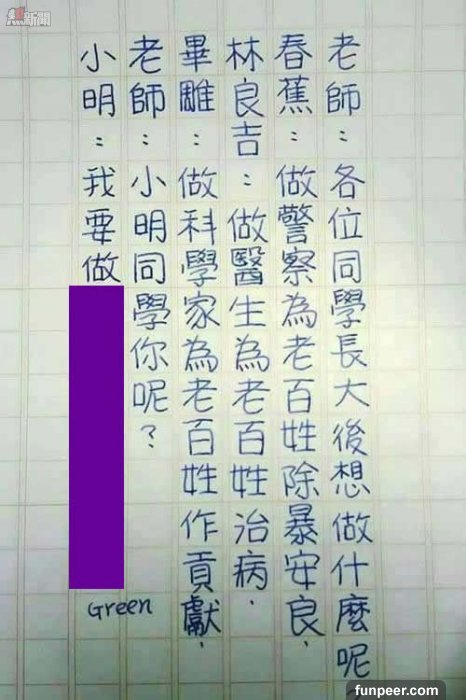 老師：各位同學長大後想做什麼呢
春蕉：做警察為老百姓除暴安良．
林良吉：做醫生為老百姓治病．
畢雕：做科學家為老百姓作貢獻．
老師：小明同學你呢？
小明：我要做
Green
焦新聞
funpeer.com